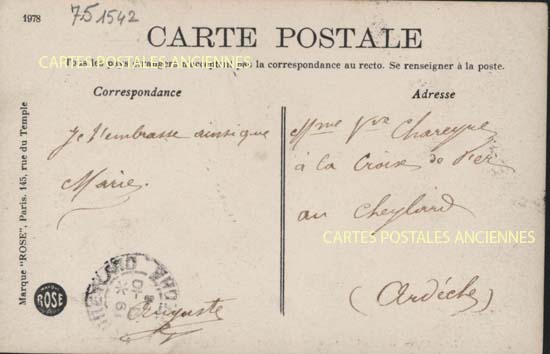 1978
751542
CARTE POSTALE
Tous les pays étrangers n'acceptent pas la correspondance au recto. Se renseigner à la poste.
CARTES POSTALES ANCIENNES
Correspondance
Je t'embrasse ainsi que
Marie.
Auguste
Adresse
Mme Vve Chareyre
à la Croix de Fer
au Cheylard
CARTES POSTALES ANCIENNES
(Ardèche)
Marque "ROSE", Paris. 145, rue du Temple
MARQUE
ROSE